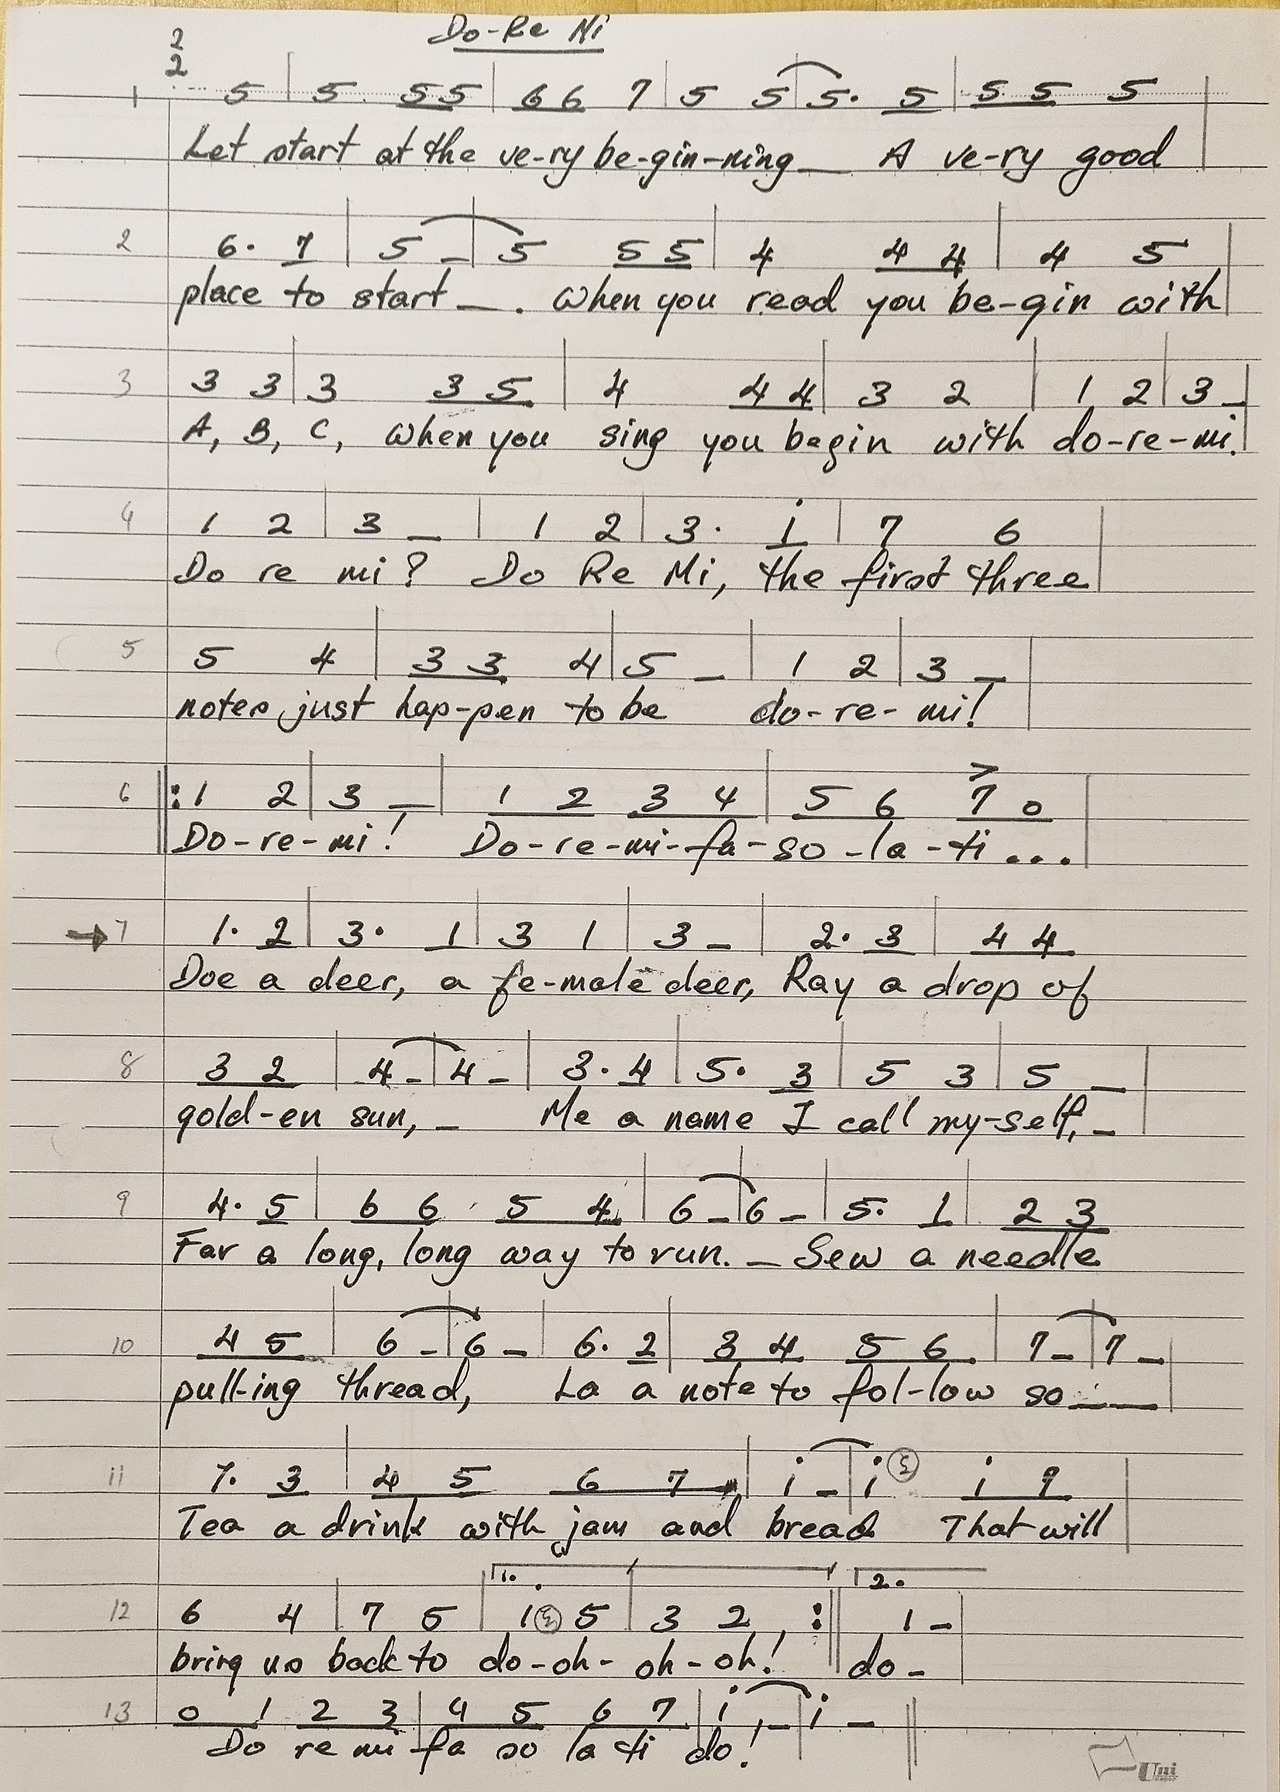 Do-Re Mi
2
2
1 5 | 5 5 5 | 6 6 7 | 5 5 | 5. 5 | 5 5 5 |
Let start at the ve-ry be-gin-ning_ A ve-ry good
2 6. 7 | 5 _ | 5 5 5 | 4 4 4 | 4 5 |
place to start_. When you read you be-gin with
3 3 3 | 3 3 5 | 4 4 4 | 3 2 | 1 2 | 3 _ |
A, B, C, when you sing you begin with do-re-mi.
4 1 2 | 3 _ | 1 2 | 3. i | 7 6 |
Do re mi? Do Re Mi, the first three
5 5 4 | 3 3 4 | 5 _ | 1 2 | 3 _ |
notes just hap-pen to be do-re-mi!
6 ||: 1 2 | 3 _ | 1 2 3 4 | 5 6 7 0 |
>
Do-re-mi! Do-re-mi-fa-so-la-ti...
→ 7 1. 2 | 3. 1 | 3 1 | 3 _ | 2. 3 | 4 4
Doe a deer, a fe-male deer, Ray a drop of
8 3 2 | 4 _ | 4 _ | 3. 4 | 5. 3 | 5 3 | 5 _ |
gold-en sun, _ Me a name I call my-self, _
9 4. 5 | 6 6 5 4 | 6 _ | 6 _ | 5. 1 | 2 3
Far a long, long way to run. _ Sew a needle
10 4 5 | 6 _ | 6 _ | 6. 2 | 3 4 5 6 | 7 _ | 7 _ |
pull-ing thread, La a note to fol-low so__
11 7. 3 | 4 5 6 7 | i _ | i i 9 |
Tea a drink with jam and bread That will
1. 2.
12 6 4 | 7 5 | i 5 | 3 2 :|| 1 _ |
bring us back to do-oh-oh-oh! do-
13 0 1 2 3 | 4 5 6 7 | i _ | i _ ||
Do re mi fa so la ti do!
Uni